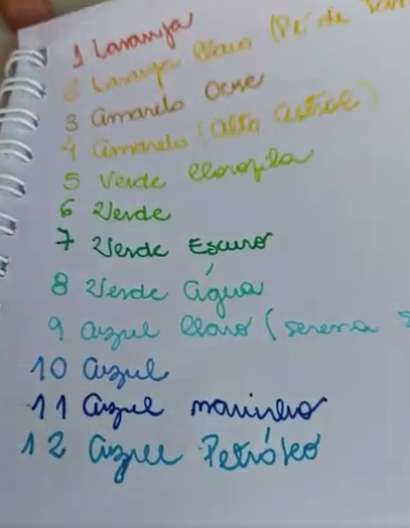 1 Laranja
2 Laranja Claro (Pé de
3 Amarelo Ocre
4 Amarelo (Alto Astral)
5 Verde Clorofila
6 Verde
7 Verde Escuro
8 Verde Água
9 Azul Claro (Serena
10 Azul
11 Azul marinho
12 Azul Petróleo